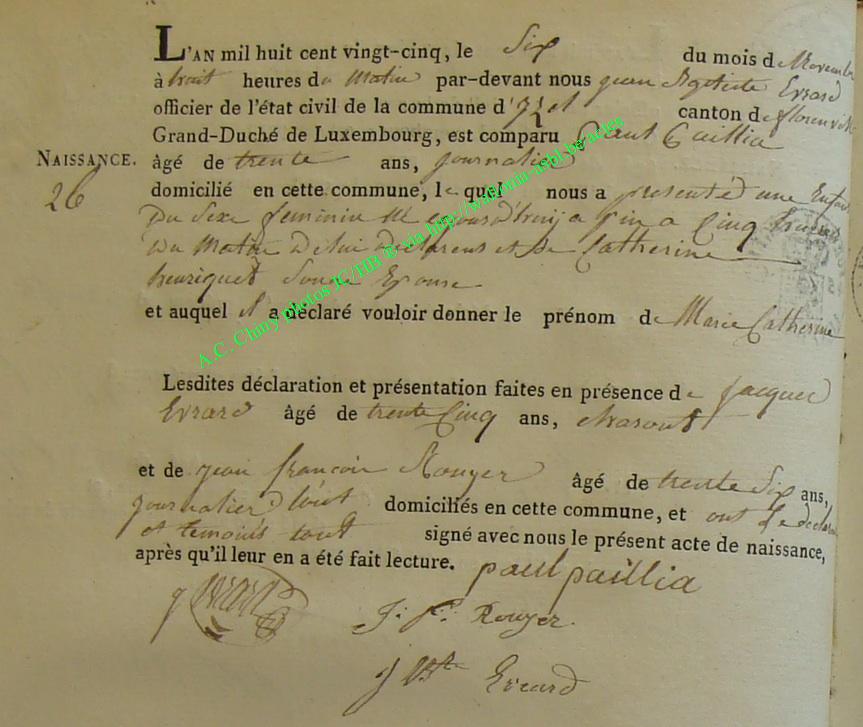 L'AN mil huit cent vingt-cinq, le Six du mois de Novembre
à huit heures du Matin par-devant nous jean Baptiste Evrard
officier de l'état civil de la commune d'Izel canton de florenville
Grand-Duché de Luxembourg, est comparu Paul Paillia
NAISSANCE. âgé de trente ans, journalier
26
domicilié en cette commune, le quel nous a presenté une Enfant
Du Sexe feminin né a cinq heures
Du Matin De lui declarent et de Catherine
henriquet Son Epouse
et auquel il a déclaré vouloir donner le prénom de Marie Catherine
Lesdites déclaration et présentation faites en présence de jacques
Evrard âgé de trente Cinq ans,
et de jean françois Rouyer âgé de trente Six ans,
journalier domiciliés en cette commune, et ont le declarent
et temoins tout signé avec nous le présent acte de naissance,
après qu'il leur en a été fait lecture. paul paillia
j Evrard
J: f: Rouyer.
j Bte Evrard
A.C. Chiny photos JC/HB ® via http://wallonia-asbl.be/actes